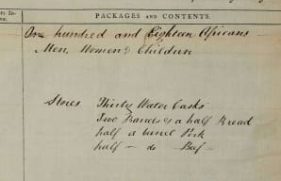 PACKAGES AND CONTENTS.
One hundred and Eighteen Africans
Men, Women & Children
Stores Thirty Water Casks
Two Barrels & a half Bread
half a barrel Pork
half - do - Beef -